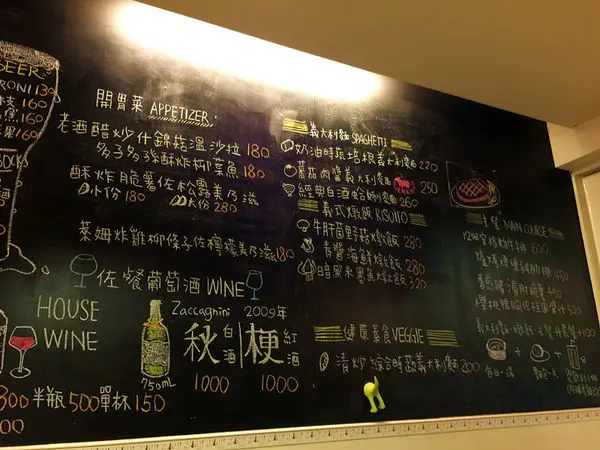 BEER
RONI 130
160
160
果160
開胃菜 APPETIZER.
老酒醋炒什錦菇溫沙拉 180
多子多孫酥炸柳葉魚 180
酥炸脆薯佐松露美乃滋
小份 180
大份 280
萊姆炸雞柳條子佐檸檬美乃滋 180
佐餐葡萄酒 WINE
HOUSE
WINE
Zaccagnini 2009年
秋 白酒
梗 紅酒
750mL
1000 1000
800 半瓶 500 單杯 150
義大利麵 SPAGHETTI
奶油時蔬培根義大利麵 220
蕃茄肉醬義大利麵 250
經典白酒蛤蜊麵 260
義式燉飯 RISOTTO
牛肝菌野菇燉飯 280
青醬海鮮燉飯 280
暗黑米墨魚燉飯 320
健康素食 VEGGIE
清炒綜合時蔬義大利麵 200
主餐 MAIN COURSE
600
450
490
520
+100
+ +
每日一湯